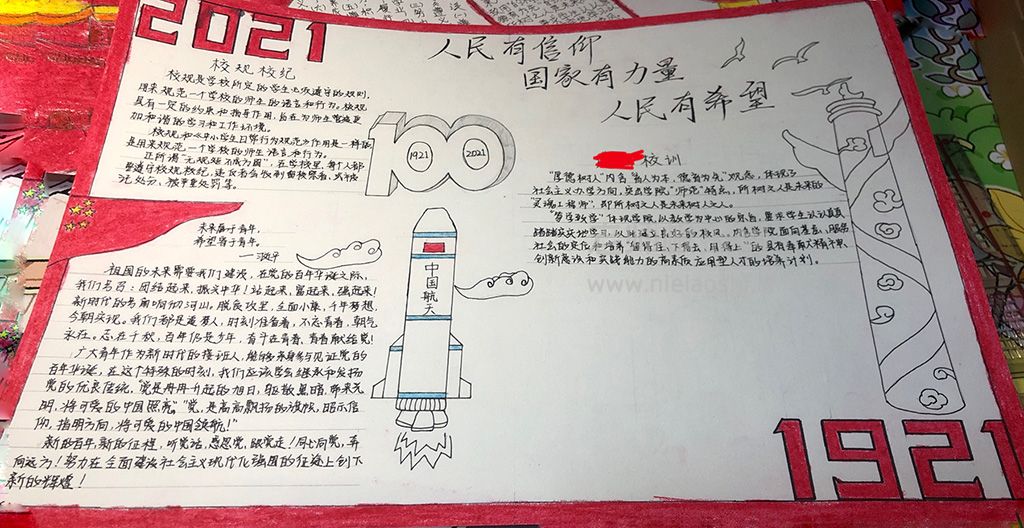 2021
人民有信仰
国家有力量
人民有希望
校规校纪
校规是学校所定的学生必须遵守的规则,
用来规范一个学校的师生的语言和行为。校规
具有一定的约束和指导作用,旨在为师生营造更
加和谐的学习和工作环境。
校规和《中小学生日常行为规范》作用是一样的
是用来规范一个学校的师生语言和行为。
正所谓"无规矩不成方圆",在学校里,每个人都
要遵守校规校纪,违反者会收到留校察看,或被
记处分、被严重处罚等。
100
1921
2021
校训
"厚德树人"内含"育人为本,德育为先"观念,体现了
社会主义办学方向,突出学院"师范"特点,所树之人是未来的
"灵魂工程师",即所树之人是未来树人之人。
"笃学致学"体现学院,以教学为中心的宗旨,要求学生认认真真
踏踏实实地学习,以此建立良好的校风,内含学院面向基层,服务
社会的定位和培养"留得住、下得去、用得上"的具有奉献大精神
创新意识和实践能力的高素质应用型人才的培养计划。
未来属于青年,
希望寄于青年。
祖国的未来需要我们建设,在党的百年华诞之际,
我们高召:团结起来,振兴中华!站起来,富起来,强起来!
新时代的号角响彻河山。脱贫攻坚,全面小康,千年梦想,
今朝实现。我们都是追梦人,时刻准备着,不忘青春,朝气
永在。志在千秋,百年仍是少年,奋斗在青春、青春献给党!
广大青年作为新时代的接班人,能够亲身参与见证党的
百年华诞,在这个特殊的时刻,我们应该学会继承和发扬
党的优良传统,"党是冉冉升起的旭日,驱散黑暗,带来光
明,将可爱的中国照亮。""党,是高高飘扬的旗帜,昭示信
仰,指明方向,将可爱的中国领航!"
新的百年,新的征程,听党话,感恩党,跟党走!同心同党,奔
向远方!努力在全面建设社会主义现代化强国的征途上创下
新的辉煌!
中国航天
1921